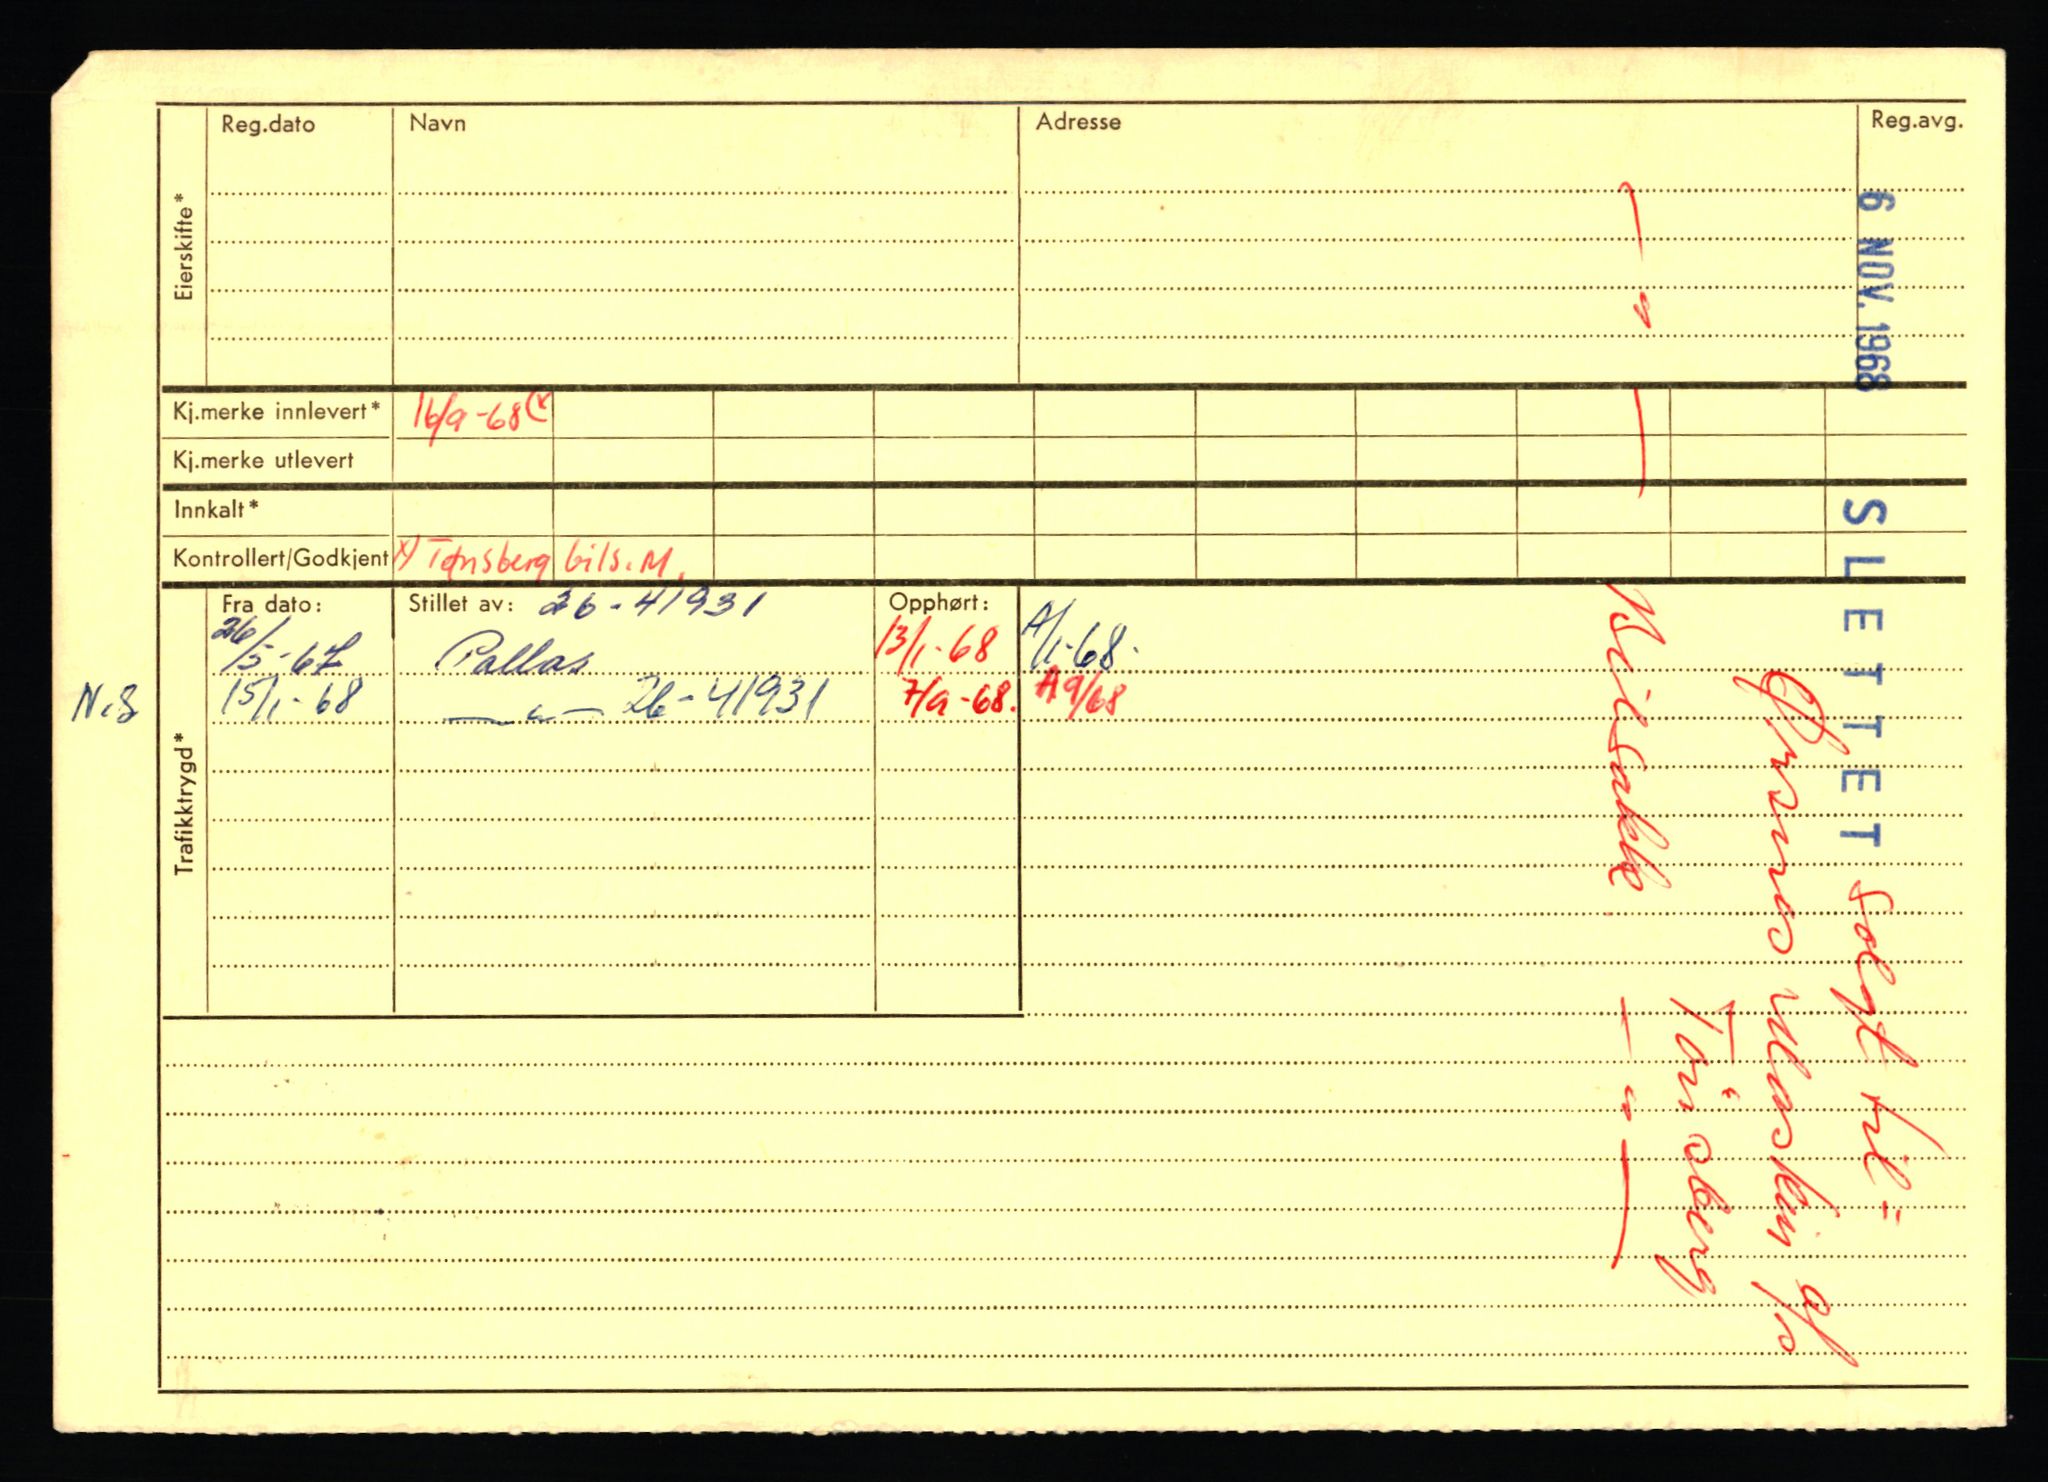 Reg.dato Navn Adresse Reg.avg.
Eierskifte*
Kj.merke innlevert* 16/9-68 (x
Kj.merke utlevert
Innkalt*
Kontrollert/Godkjent x) Tønsberg bils.M.
Trafikktrygd*
Fra dato: Stillet av: 26-41931 Opphørt:
26/5-67 Pallas 13/1-68 A/1-68.
N.S 15/1-68 —"— 26-41931 7/9-68. A9/68
6 NOV. 1968 SLETTET solgt til:
Tønsberg
— " — Bilsakk. — " —